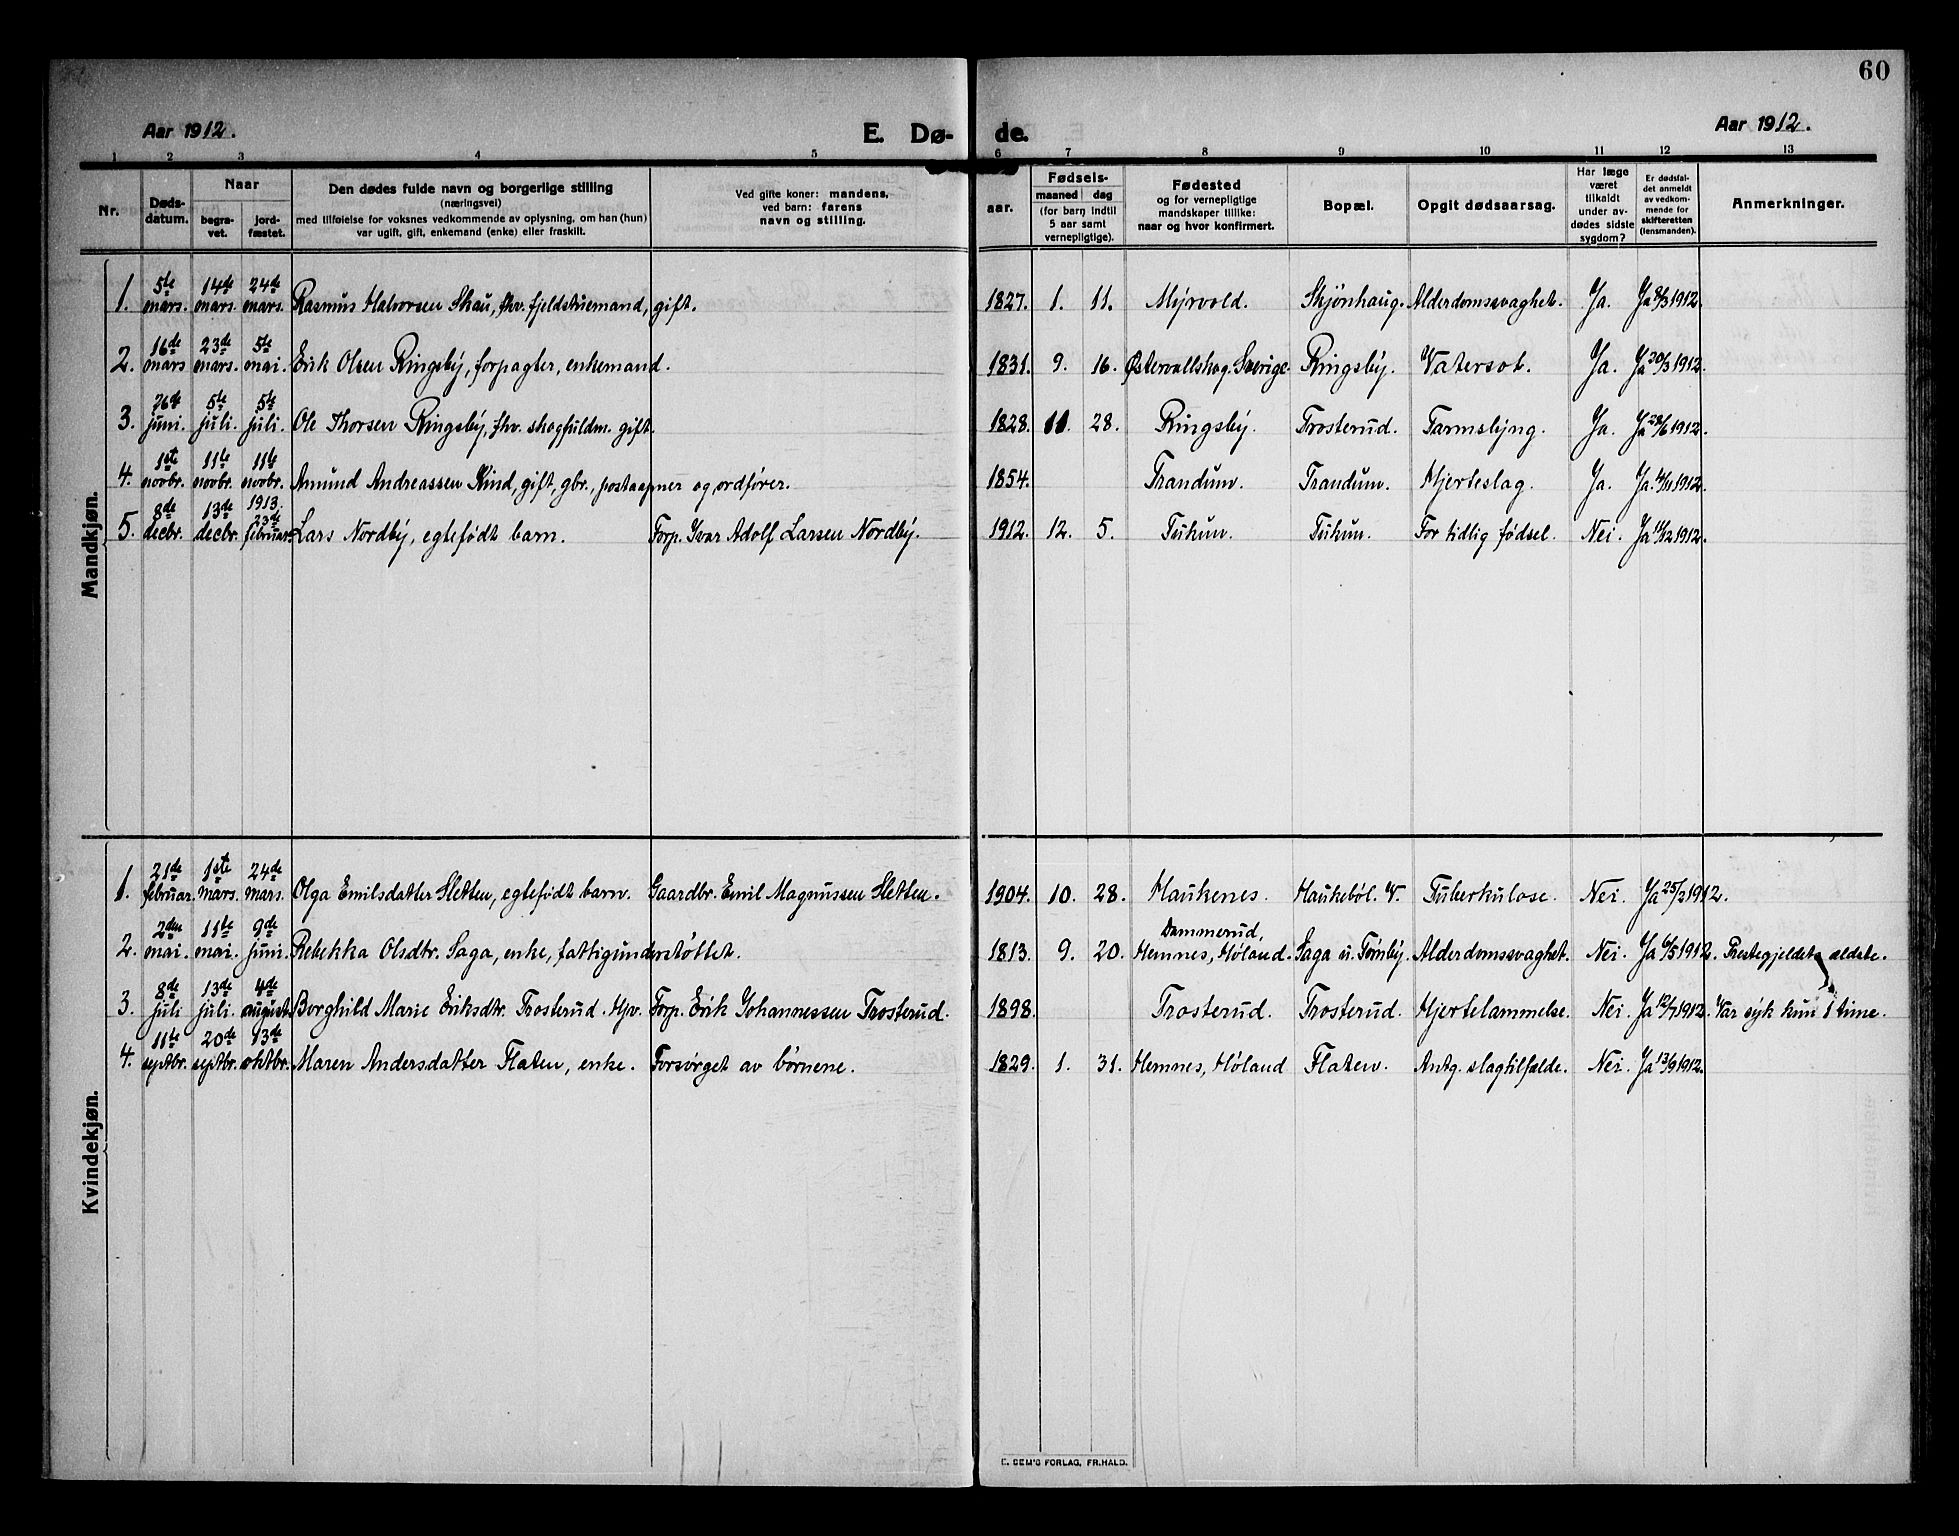 60
Aar 1912.
E. Dø-
de.
Aar 1912.
1 2 3 4 5 6 7 8 9 10 11 12 13
Nr.
Døds-
datum.
Naar
begra-
vet.
jord-
fæstet.
Den dødes fulde navn og borgerlige stilling
(næringsvei)
med tilføielse for voksnes vedkommende av oplysning, om han (hun)
var ugift, gift, enkemand (enke) eller fraskilt.
Ved gifte koner: mandens,
ved barn: farens
navn og stilling.
aar.
Fødsels-
maaned dag
(for barn indtil
5 aar samt
vernepligtige).
Fødested
og for vernepligtige
mandskaper tillike:
naar og hvor konfirmert.
Bopæl.
Opgit dødsaarsag.
Har læge
været
tilkaldt
under av-
dødes sidste
sygdom?
Er dødsfal-
det anmeldt
av vedkom-
mende for
skifteretten
(lensmanden).
Anmerkninger.
Mandkjøn.
1. 5te mars. 14de mars. 24de mars. Rasmus Halvorsen Skau, fhv. fjeldstuemand, gift. 1827. 1. 11. Myrvold. Skjønhaug. Alderdomssvaghet. Ja. Ja 8/3 1912.
2. 16de mars 23de mars. 5te mai. Erik Olsen Ringsby, forpagter, enkemand. 1831. 9. 16. Østervallskog, Sverige. Ringsby. Vatersot. Ja. Ja 20/3 1912.
3. 26de juni. 5te juli. 5te juli. Ole Thorsen Ringsby, fhv. skogfuldm. gift. 1828. 11. 28. Ringsby. Trosterud. Tarmslyng. Ja. Ja 28/6 1912.
4. 1ste novbr. 11te novbr. 11te novbr. Amund Andreassen Kind, gift, gbr., postaapner og ordfører. 1854. Trandum. Trandum. Hjerteslag. Ja. Ja. 4/11 1912.
5. 8de decbr. 13de decbr. 1913. 23de februar. Lars Nordby, egtefødt barn. Forp. Ivar Adolf Larsen Nordby. 1912. 12. 5. Tukun. Tukun. For tidlig fødsel. Nei. Ja 11/12 1912.
Kvindekjøn.
1. 21de februar. 1ste mars. 24de mars. Olga Emilsdatter Sletten, egtefødt barn. Gaardbr. Emil Magnussen Sletten. 1904. 10. 28. Haukenes. Haukebøl. V. Tuberkulose. Nei. Ja 25/2 1912.
2. 2den mai. 11te mai. 9de juni. Rebekka Olsdtr. Saga, enke, fattigunderstøttet. 1813. 9. 20. Dammerud, Hemnes, Høland. Saga u. Tørnby. Alderdomssvaghet. Nei. Ja 6/5 1912. Prestegjeldets ældste.
3. 8de juli 13de juli. 4de august. Borghild Marie Eriksdtr. Trosterud. Hjv. Forp. Erik Johannessen Trosterud. 1898. Trosterud. Trosterud. Hjertelammelse. Nei. Ja 12/7 1912. Var syk kun 1 time.
4. 11te septbr. 20de septbr. 13de oktbr. Maren Andersdatter Flaten, enke. Forsørget av børnene. 1829. 1. 31. Hemnes, Høland Flaten. Antg. slagtilfælde. Nei. Ja 13/9 1912.
E. SEM'S FORLAG, FR.HALD.